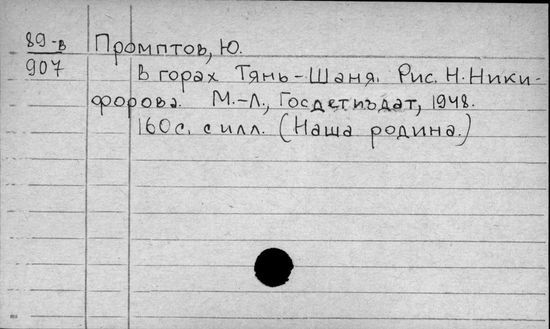 89-в Промптов, Ю.
907
В горах Тянь-Шаня. Рис. Н. Ники-
форова. М.-Л., Госдетиздат, 1948.
160 с. с илл. (Наша родина.)